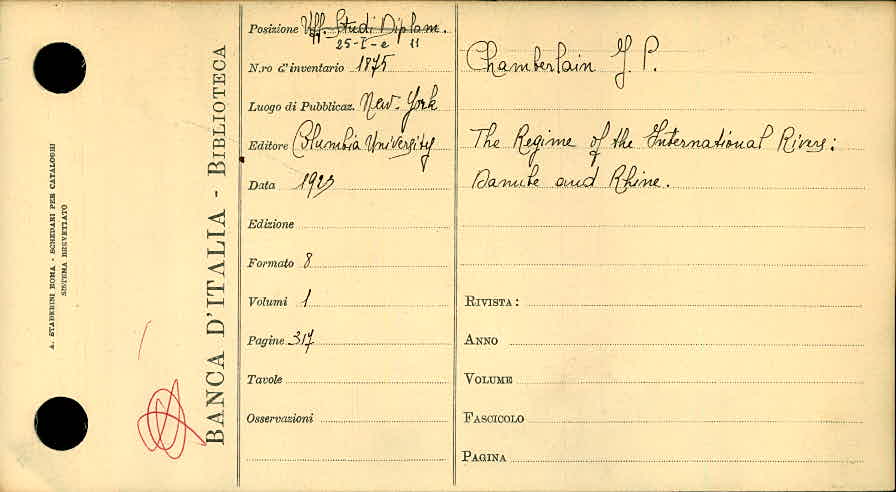 A. STADERINI ROMA - SCHEDARI PER CATALOGHI
SISTEMA BREVETTATO
BANCA D'ITALIA - BIBLIOTECA
Posizione Uff. Studi Diplom.
25-I-e 11
N.ro d'inventario 1875
Luogo di Pubblicaz. New-York
Editore Columbia University
Data 1923
Edizione
Formato 8
Volumi 1
Pagine 317
Tavole
Osservazioni
Chamberlain J. P.
The Regime of the International Rivers:
Danube and Rhine.
RIVISTA:
ANNO
VOLUME
FASCICOLO
PAGINA